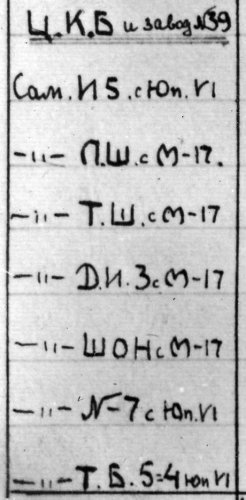 Ц.К.Б и завод №39
Сам. И5. с Юп. VI
—"— Л.Ш. с М-17.
—"— Т.Ш. с М-17
—"— Д.И. 3 с М-17
—"— ШОН с М-17
—"— №-7 с Юп. VI
—"— Т. Б. 5=4 юп VI